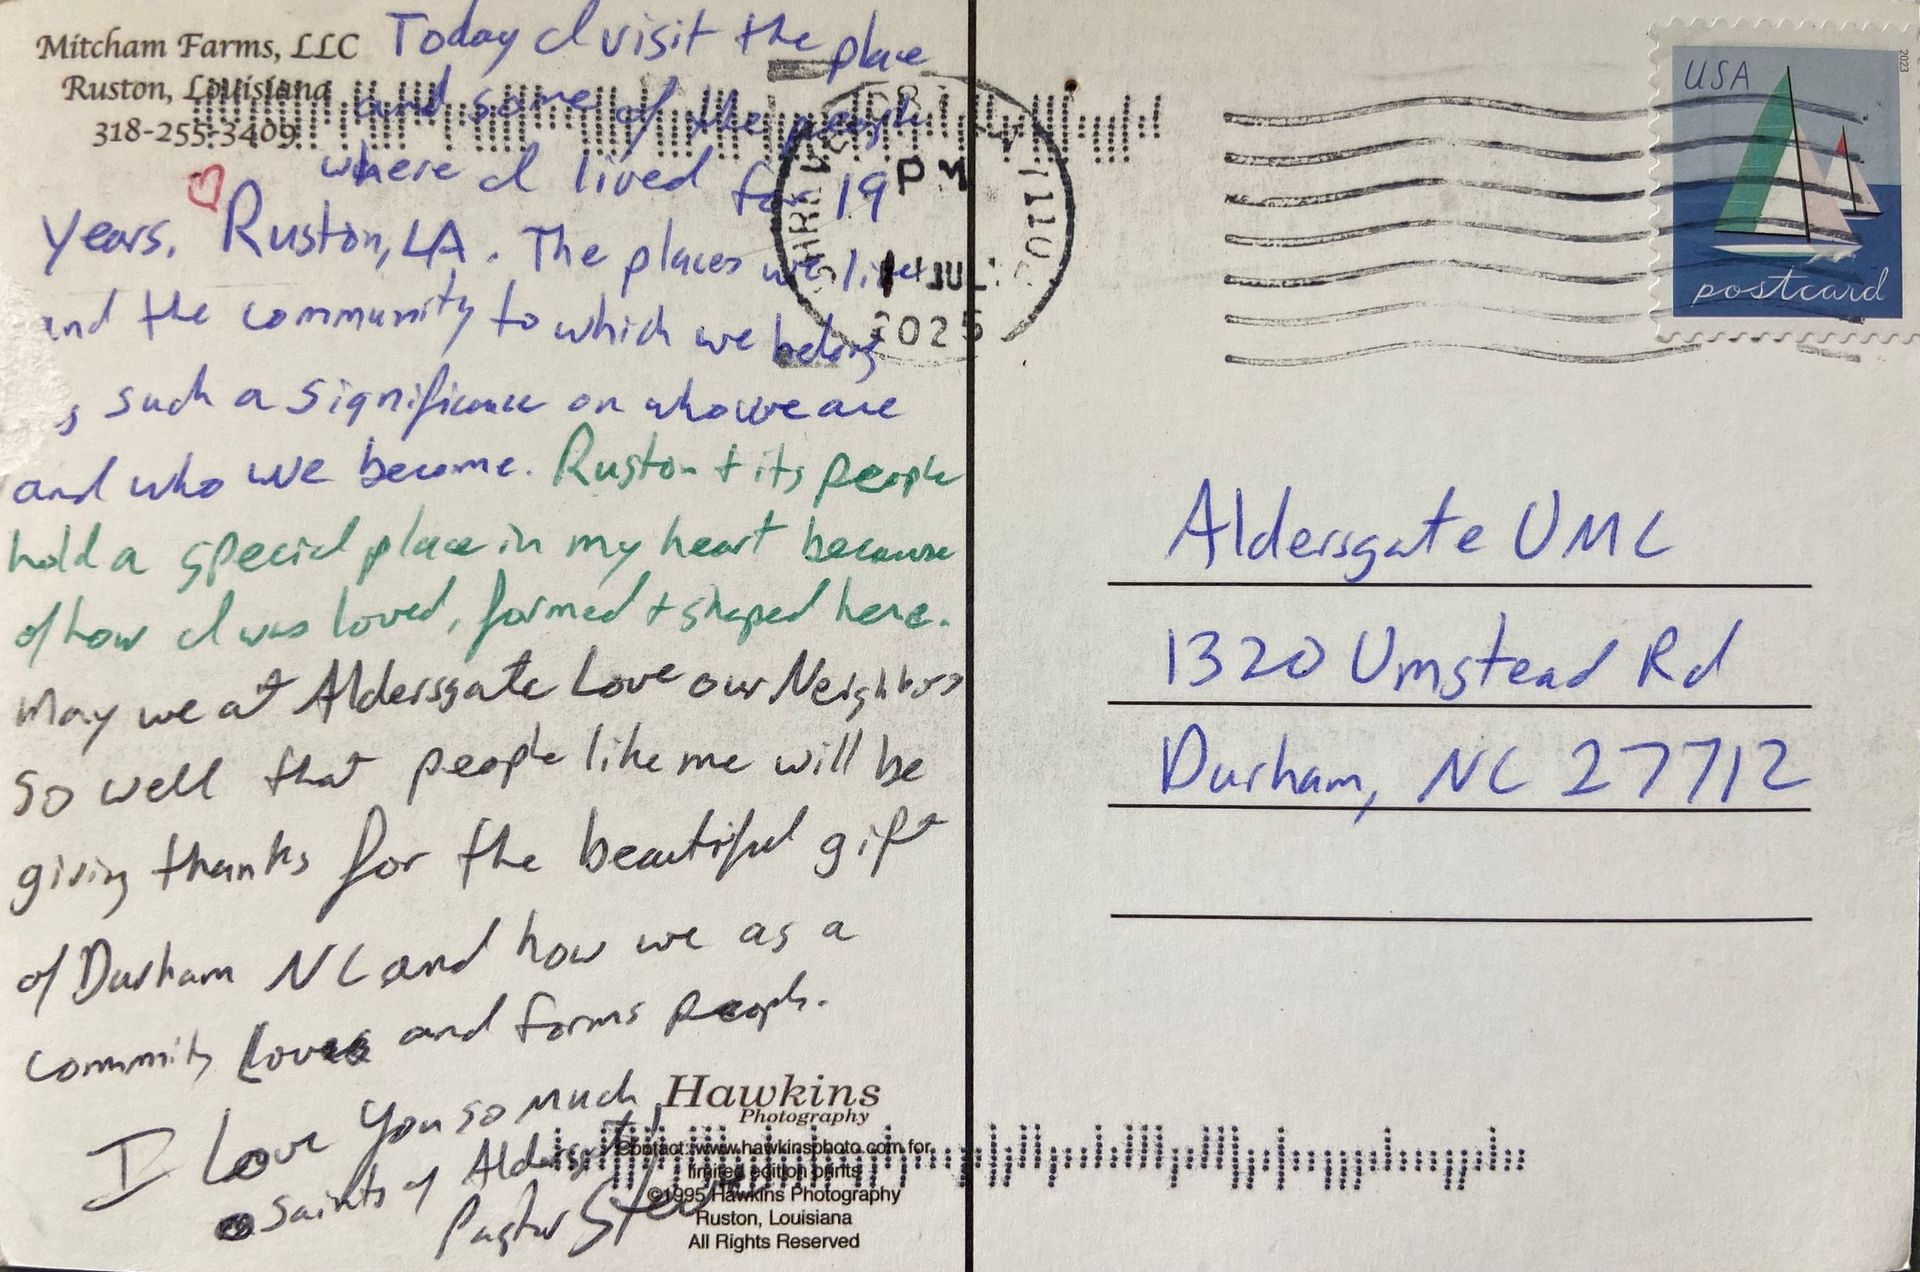 Mitcham Farms, LLC
Ruston, Louisiana
318-255-3409
Today I visit the place
and some of the people
where I lived for 19
years. Ruston, LA. The places we live
and the community to which we belong
such a significance on who we are
and who we become. Ruston + its people
hold a special place in my heart because
of how I was loved, formed + shaped here.
May we at Aldersgate Love our Neighbors
so well that people like me will be
giving thanks for the beautiful gift
of Durham NC and how we as a
community loves and forms people.
I Love You so much
saints of Aldersgate!
Pastor Steve
Hawkins
Photography
Contact: www.hawkinsphoto.com for
limited edition prints
©1995 Hawkins Photography
Ruston, Louisiana
All Rights Reserved
PM
JUL
2025
USA
2023
postcard
Aldersgate UMC
1320 Umstead Rd
Durham, NC 27712